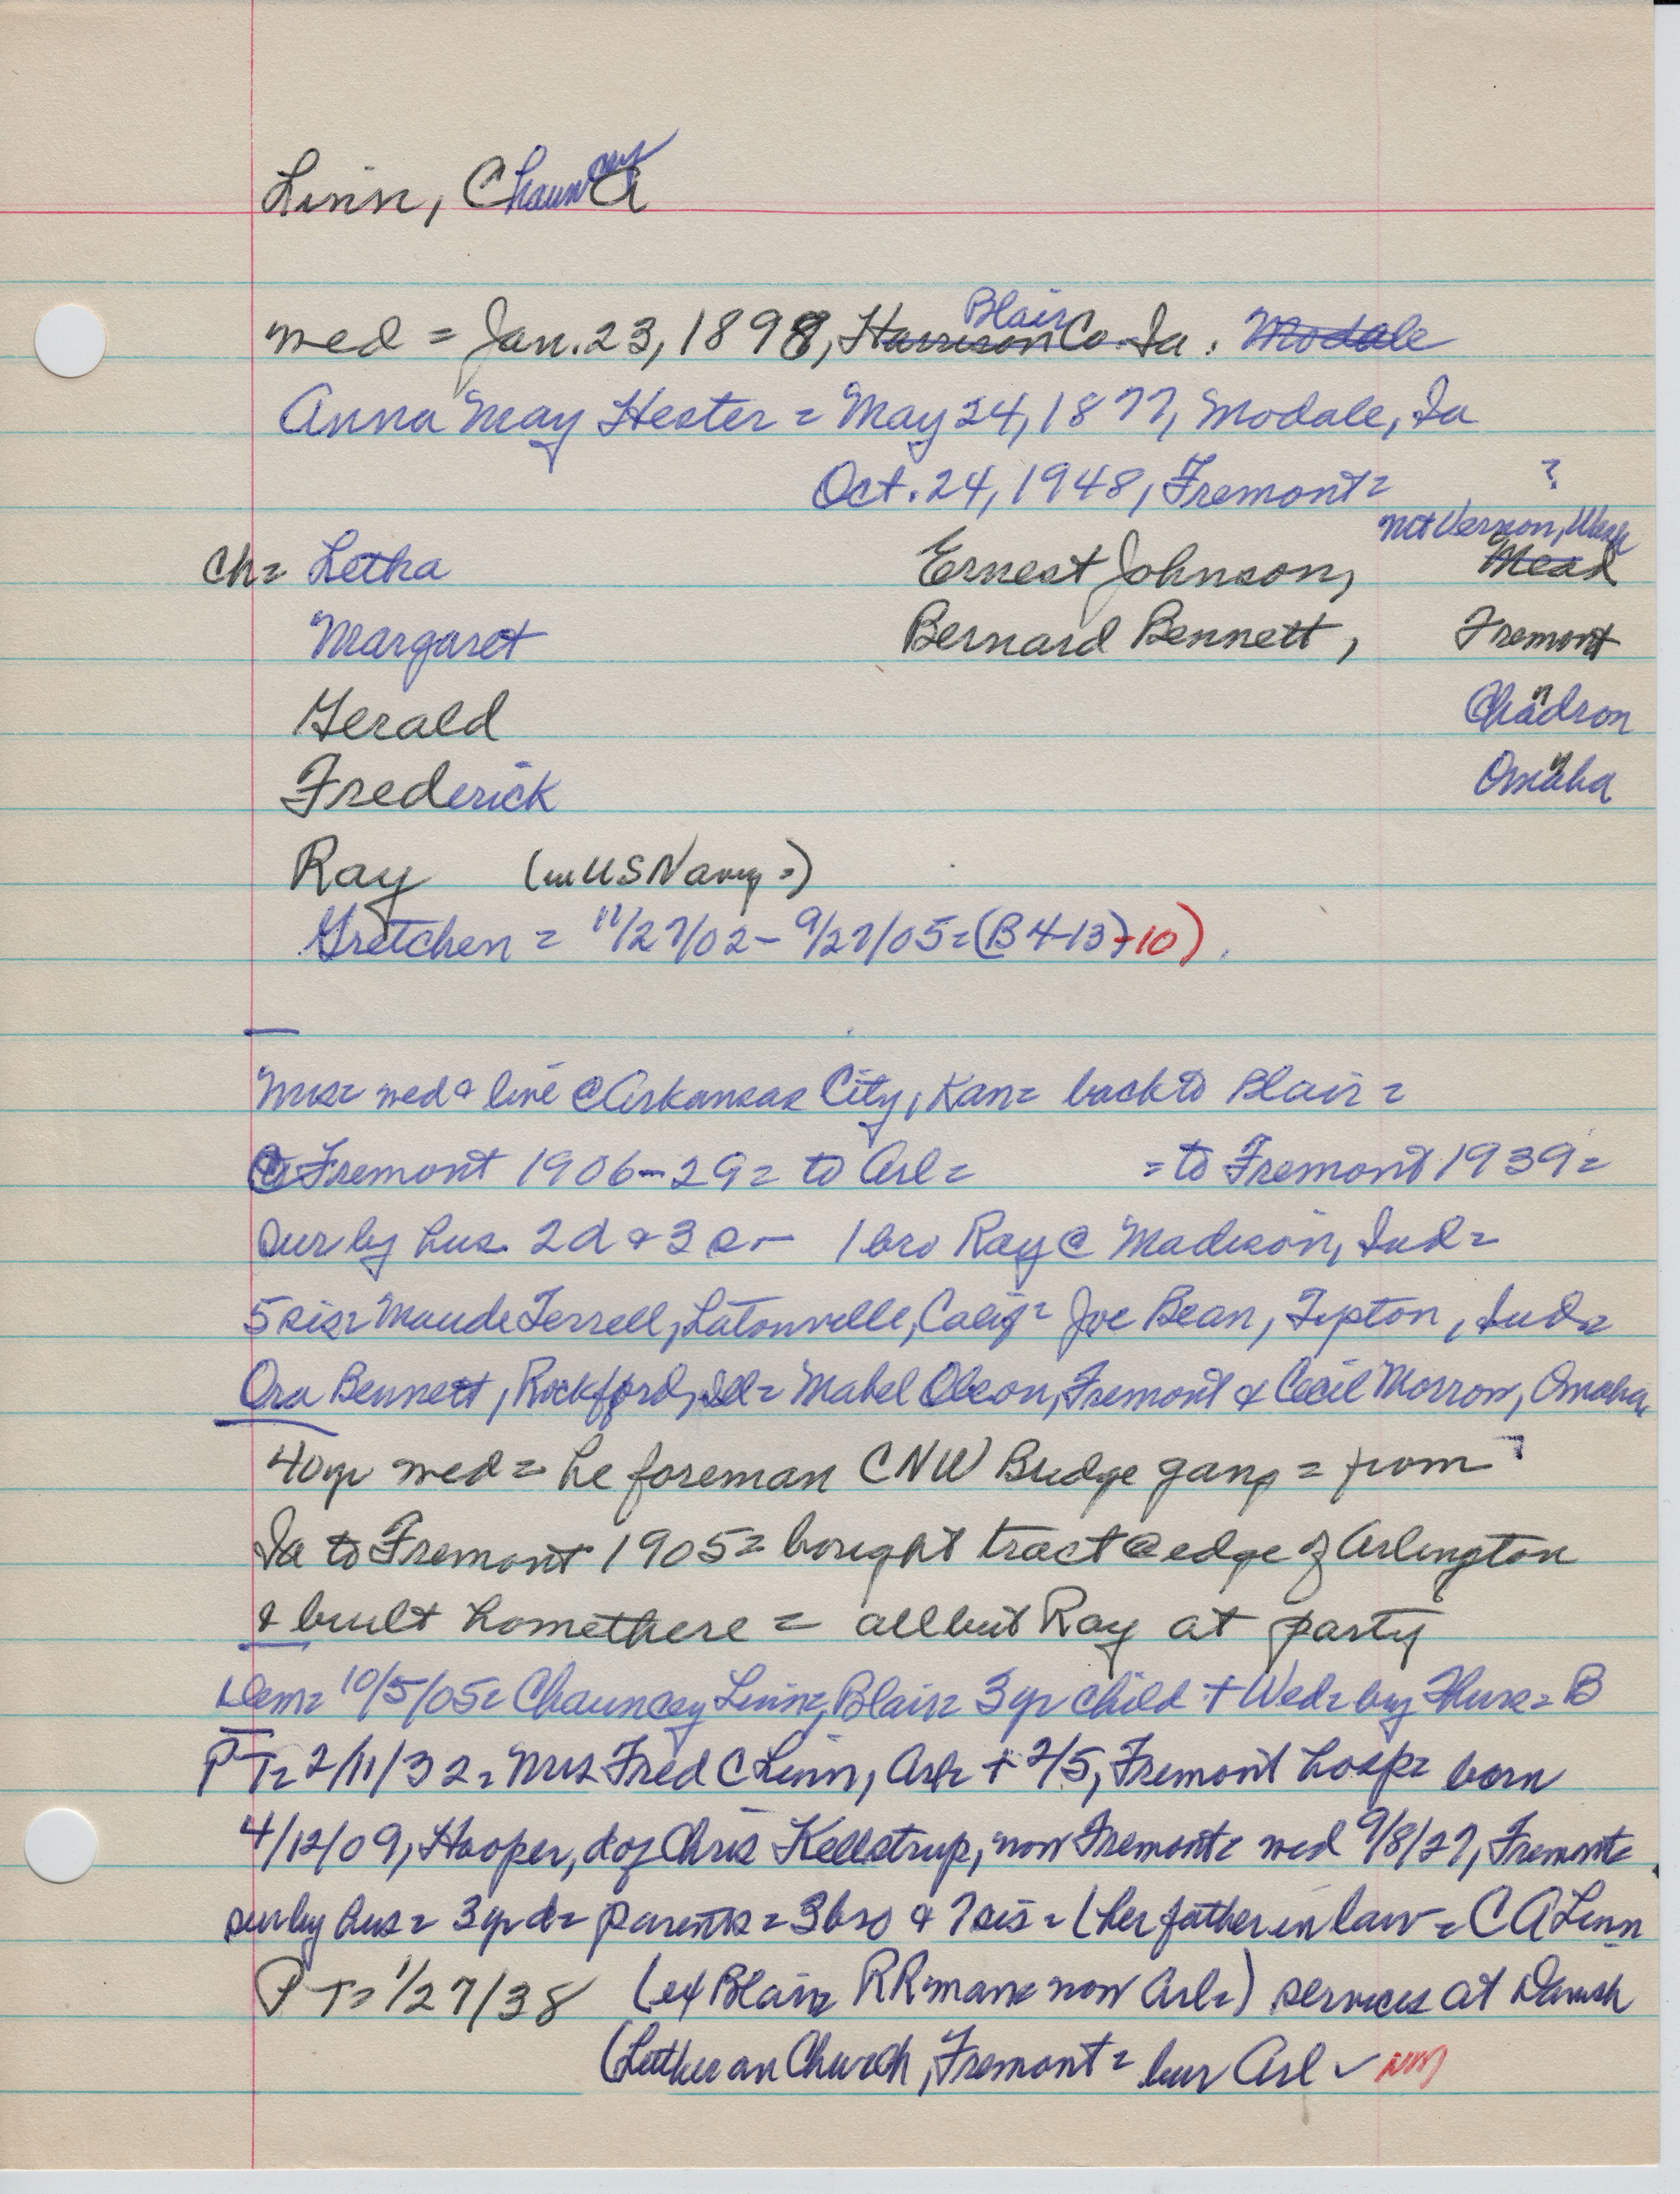 Linn, Chauncey A
Blair
med = Jan. 23, 1898, Harrison Co. Ia. Modale
Anna May Hester = May 24, 1877, Modale, Ia
Oct. 24, 1948, Fremont = ?
Mt Vernon, Wash
Ch = Letha Ernest Johnson, Mead
Margaret Bernard Bennett, Fremont
Gerald Chadron
Frederick Omaha
Ray (in US Navy =)
Gretchen = 11/27/02 - 9/27/05 = (B 4-13)-10)
Mrs = med & live @ Arkansas City, Kan = back to Blair =
@ Fremont 1906-29 = to Arl = = to Fremont 1939 =
sur by hus 2d & 3 s - 1 bro Ray @ Madison, Ind =
5 sis = Maude Terrell, Latonville, Calif = Joe Bean, Tipton, Ind =
Ora Bennett, Rockford, Ill = Mabel Olson, Fremont & Cecil Morrow, Omaha
40 yr med = he foreman CNW Bridge gang = from ?
Ia to Fremont 1905 = bought tract @ edge of Arlington
& built home there = all but Ray at party
Dem = 10/5/05 = Chauncey Linn, Blair = 3 yr child + Wed = by Thurs = B
PT = 2/11/32 = Mrs Fred C Linn, Arl = + 2/5, Fremont hosp = born
4/12/09, Hooper, d of Chris Kellstrup, now Fremont = med 9/8/27, Fremont =
sur by hus = 3 yr d = parents = 3 bro & 7 sis = (her father in law = C A Linn
PT = 1/27/38 (ex Blair RR man = now Arl =) services at Danish
(Lutheran Church, Fremont = bur Arl ✓ NM